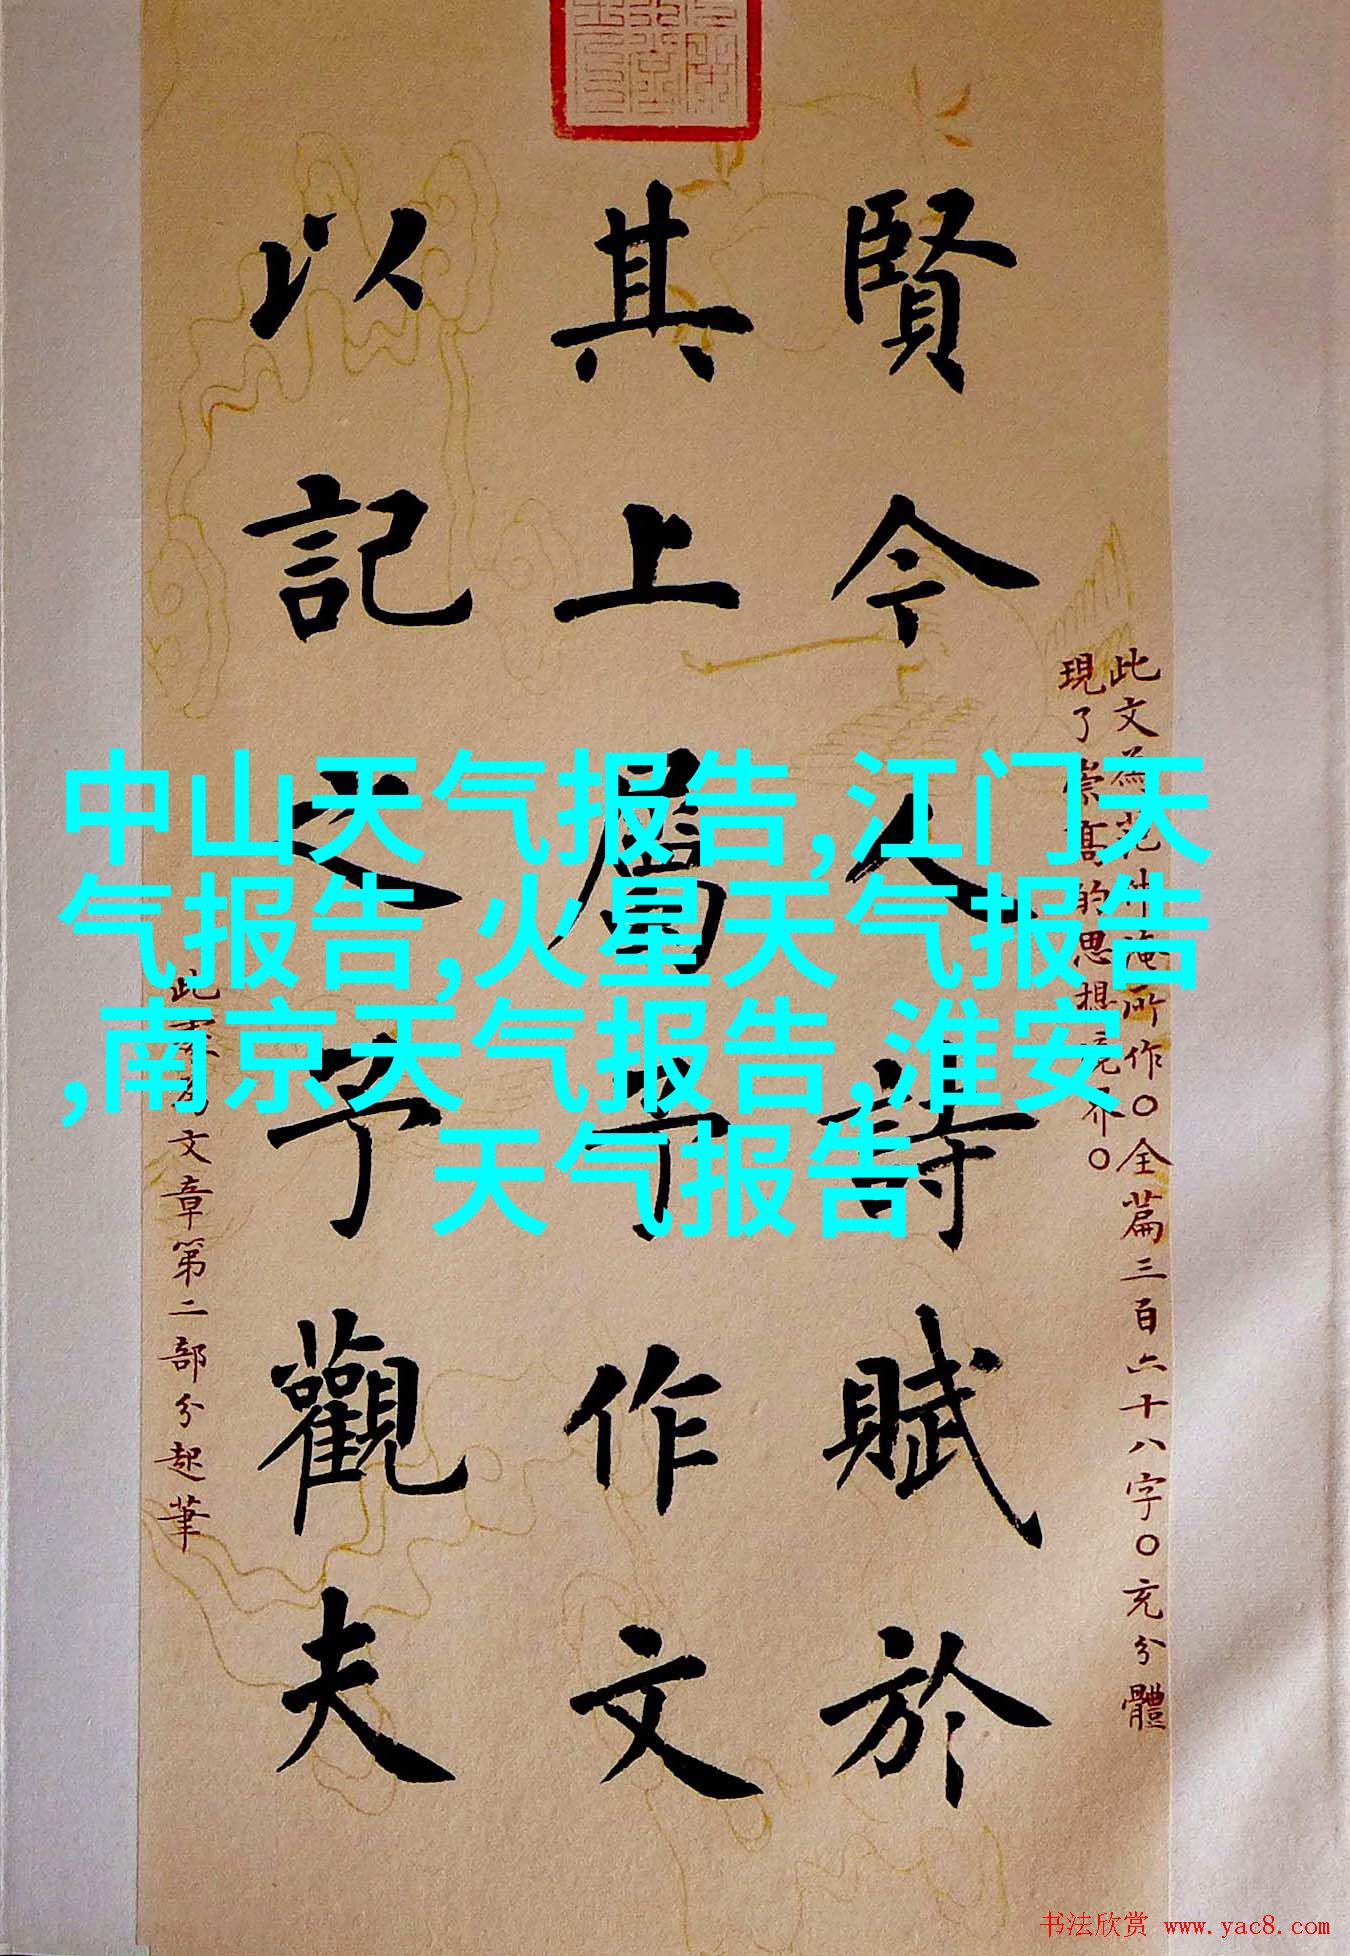 賢今人詩賦於
其上屬予作文
以記之予觀夫
此文為范仲淹所作○全篇三百六十八字○充分體
現了崇高的思想境界○
文章第二部分起筆
中山天气报告,江门天
气报告,火星天气报告
,南京天气报告,淮安
天气报告
书法欣赏 www.yac8.com